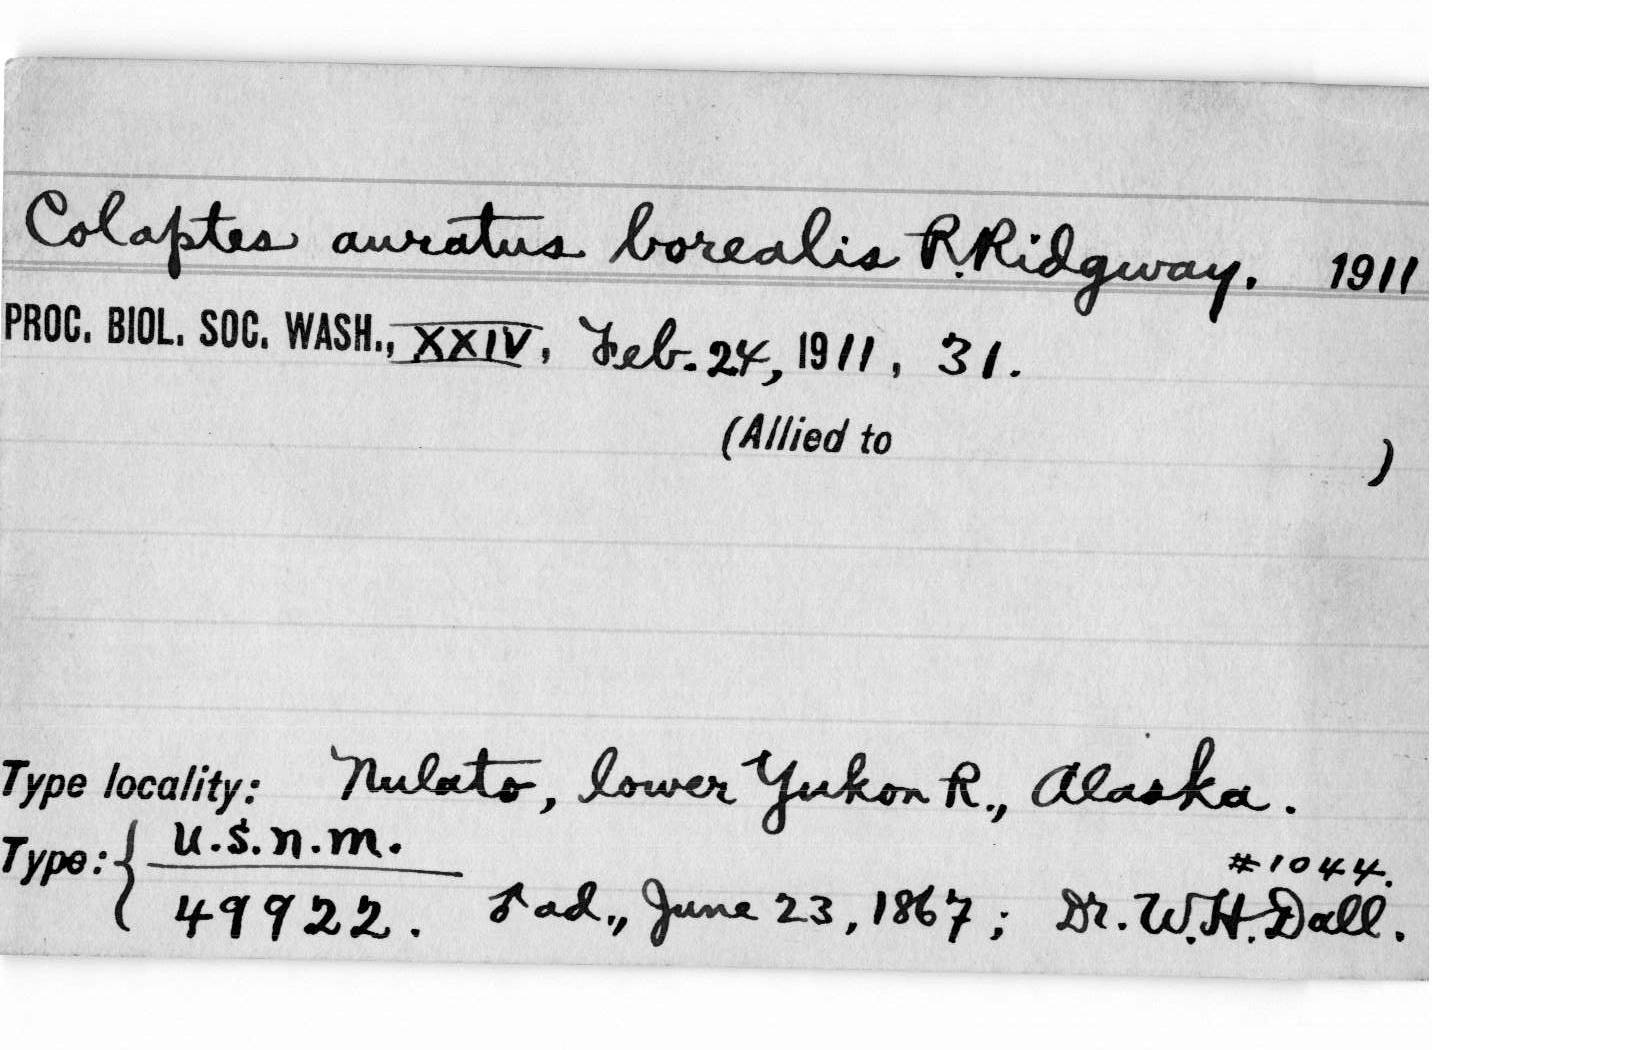 Colaptes auratus borealis R. Ridgway. 1911
PROC. BIOL. SOC. WASH., XXIV, Feb. 24, 1911, 31.
(Allied to )
Type locality: Nulato, lower Yukon R., Alaska.
Type: { U.S.N.M.
#1044.
49922. ♂ ad., June 23, 1867; Dr. W.H. Dall.